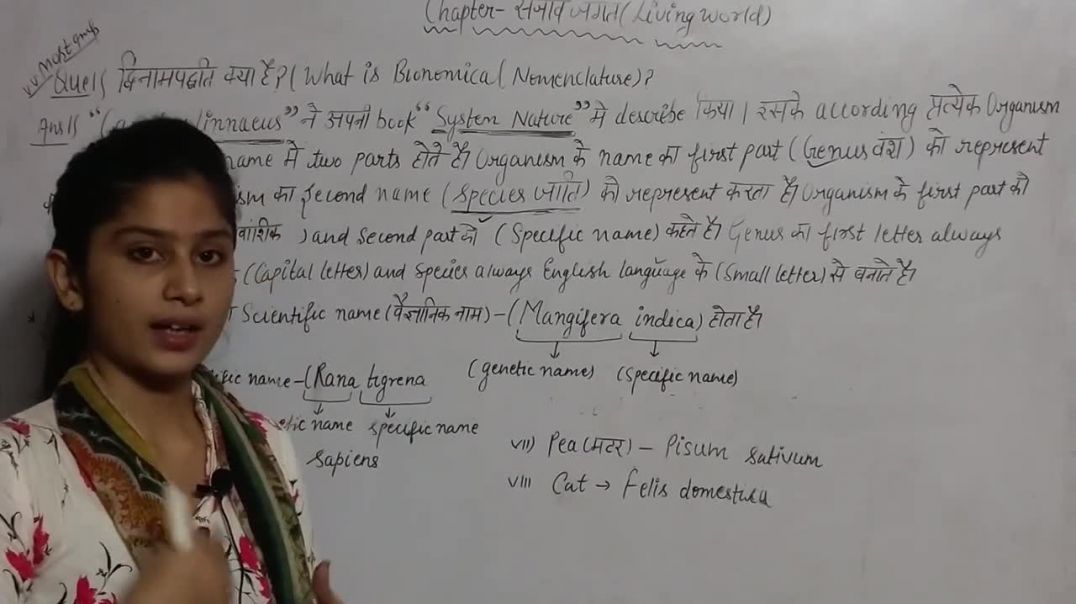 Chapter- सजीव जगत (Living world)
V.V Most qmp
Que1| द्विनामपद्धति क्या है? (What is Bionomical Nomenclature)?
Ans1| "Ca linnaeus" ने अपनी book "System Nature" में describe किया। इसके according प्रत्येक Organism
name में two parts होते है। Organism के name का first part (Genus वंश) को represent
ism का second name (Species जाति) को represent करता है। Organism के first part को
वांशिक ) and second part को (Specific name) कहते है। Genus का first letter always
(Capital letter) and species always English language के (Small letter) से बनाते है।
Scientific name (वैज्ञानिक नाम) - (Mangifera indica) होता है।
fic name - (Rana tigrena (genetic name) (specific name)
etic name specific name
VII) Pea (मटर) - Pisum sativum
sapiens
VIII Cat → Felis domestica